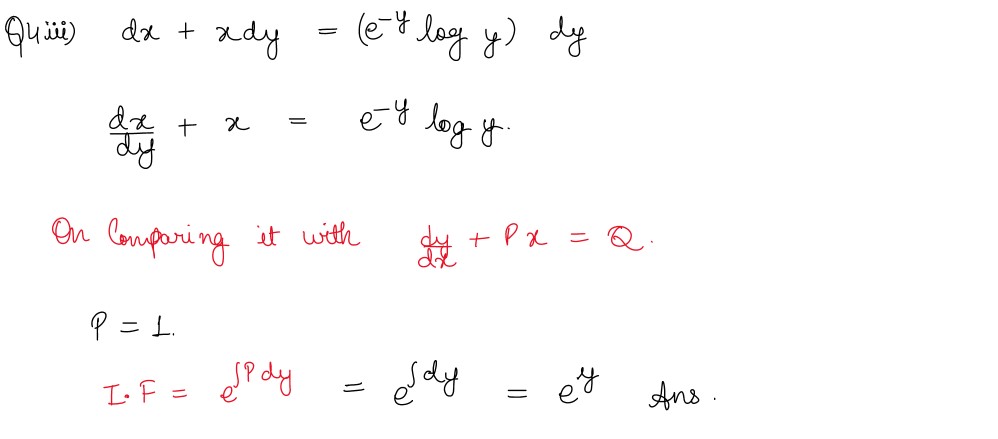 Q4iii) dx + xdy = (e^-y log y) dy
dx/dy + x = e^-y log y.
On Comparing it with dy/dx + Px = Q.
P = 1.
I.F = e^∫Pdy = e^∫dy = e^y Ans.